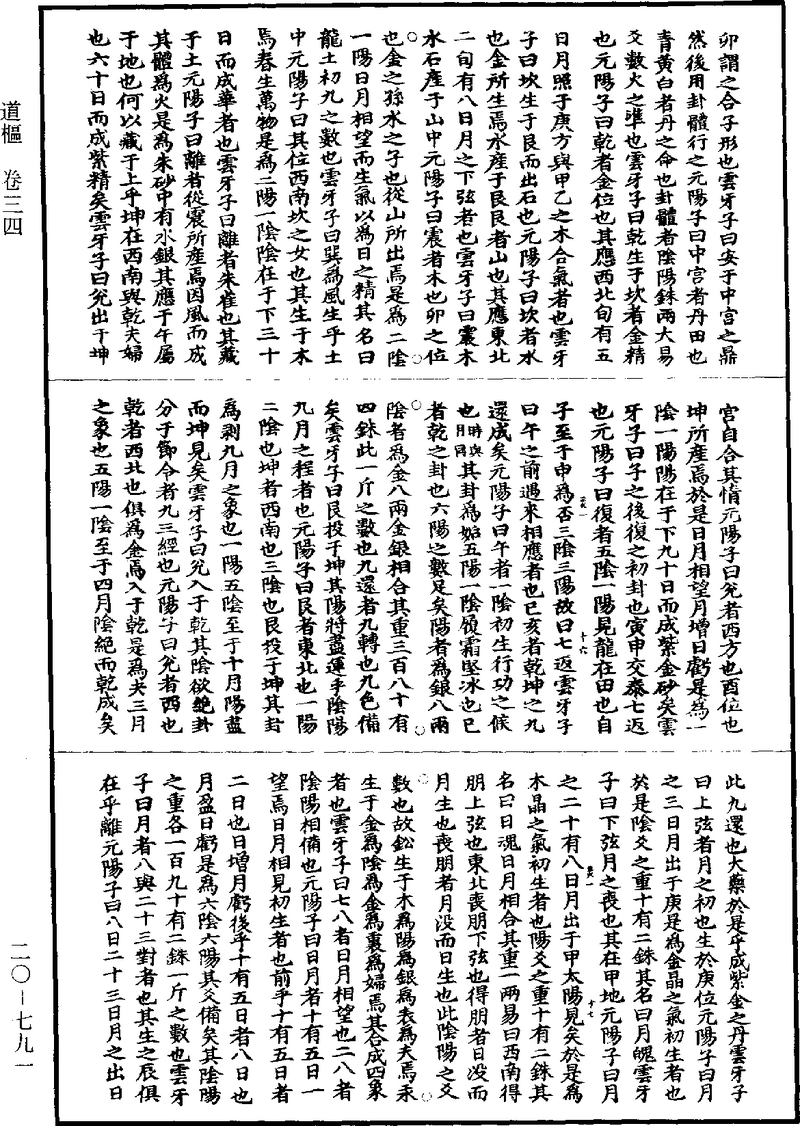 道樞　卷三四
二〇－七九一
卯謂之合子形也雲牙子曰安于中宫之鼎
然後用卦體行之元陽子曰中宫者丹田也
青黄白者丹之命也卦體者陰陽銖兩大易
爻數火之準也雲牙子曰乾生于坎者金精
也元陽子曰乾者金位也其應西北旬有五
日月照于庚方與甲乙之木合氣者也雲牙
子曰坎生于艮而出石也元陽子曰坎者水
也金所生焉水産于艮艮者山也其應東北
二旬有八日月之下弦者也雲牙子曰震木
水石産于山中元陽子曰震者木也卯之位
也金之孫水之子也從山所出焉是爲二陰
一陽日月相望而生氣以爲日之精其名曰
龍土初九之數也雲牙子曰巽爲風生乎土
中元陽子曰其位西南坎之女也其生于木
焉春生萬物是爲二陽一陰陰在于下三十
日而成華者也雲牙子曰離者朱雀也其藏
于土元陽子曰離者從震所産焉因風而成
其體爲火是爲朱砂中有水銀其應于午屬
于地也何以藏于上乎坤在西南與乾夫婦
也六十日而成紫精矣雲牙子曰兑出于坤
宫自合其情元陽子曰兑者西方也酉位也
坤所産焉於是日月相望月增日虧是爲一
陰一陽陽在于下九十日而成紫金砂矣雲
牙子曰子之後復之初卦也寅申交泰七返
也元陽子曰復者五陰一陽見龍在田也自
子至于申爲否三陰三陽故曰七返雲牙子
曰午之前過來相應者也巳亥者乾坤之九
還成矣元陽子曰午者一陰初生行功之候
也時與月同其卦爲姤五陽一陰履霜堅冰也巳
者乾之卦也六陽之數足矣陽者爲銀八兩
陰者爲金八兩金銀相合其重三百八十有
四銖此一斤之數也九還者九轉也九色備
矣雲牙子曰艮投于坤其陽將盡運乎陰陽
九月之程者也元陽子曰艮者東北也一陽
二陰也坤者西南也三陰也艮投于坤其卦
爲剥九月之象也一陽五陰至于十月陽盡
而坤見矣雲牙子曰兑入于乾其陰欲絶卦
分子節令者九三經也元陽子曰兑者西也
乾者西北也俱爲金焉入于乾是爲夬三月
之象也五陽一陰至于四月陰絶而乾成矣
此九還也大藥於是乎成紫金之丹雲牙子
曰上弦者月之初也生於庚位元陽子曰月
之三日月出于庚是爲金晶之氣初生者也
於是陰爻之重十有二銖其名曰月魄雲牙
子曰下弦月之喪也其在甲地元陽子曰月
之二十有八日月出于甲太陽見矣於是爲
木晶之氣初生者也陽爻之重十有二銖其
名曰日魂日月相合其重一兩易曰西南得
朋上弦也東北喪朋下弦也得朋者日没而
月生也喪朋者月没而日生也此陰陽之爻
數也故鈆生于木爲陽爲銀爲表爲夫焉汞
生于金爲陰爲金爲裏爲婦焉其合成四象
者也雲牙子曰七八者日月相望也二八者
陰陽相備也元陽子曰日月者十有五日一
望焉日月相見初生者也前乎十有五日者
二日也日增月虧後乎十有五日者八日也
月盈日虧是爲六陰六陽其爻備矣其陰陽
之重各一百九十有二銖一斤之數也雲牙
子曰月者八與二十三對者也其生之辰俱
在乎離元陽子曰八日二十三日月之出日